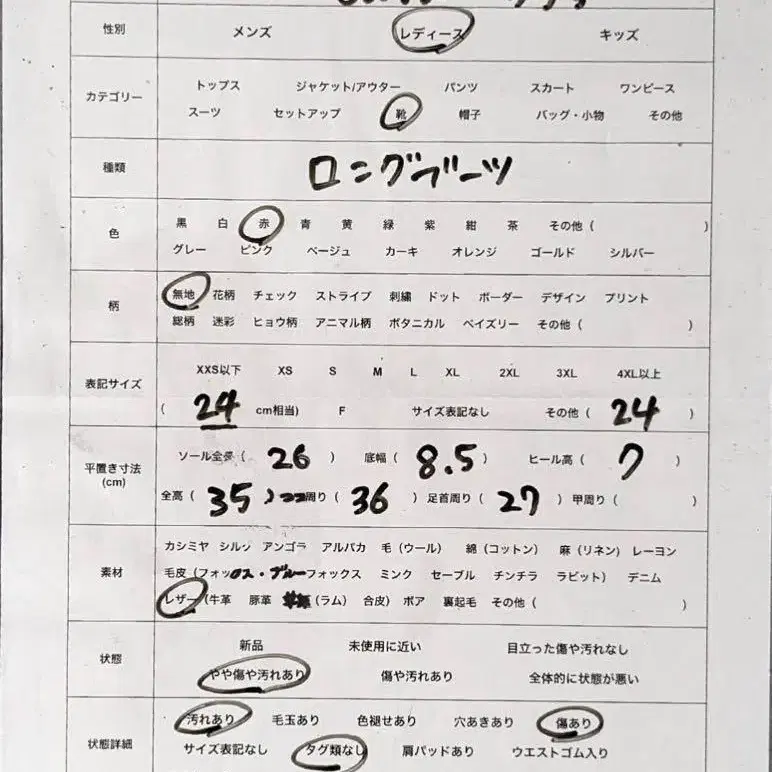 性別 メンズ レディース キッズ
カテゴリー
トップス ジャケット/アウター パンツ スカート ワンピース
スーツ セットアップ 靴 帽子 バッグ・小物 その他
種類 ロングブーツ
色
黒 白 赤 青 黄 緑 紫 紺 茶 その他 ( )
グレー ピンク ベージュ カーキ オレンジ ゴールド シルバー
柄
無地 花柄 チェック ストライプ 刺繍 ドット ボーダー デザイン プリント
総柄 迷彩 ヒョウ柄 アニマル柄 ボタニカル ペイズリー その他 ( )
表記サイズ
XXS以下 XS S M L XL 2XL 3XL 4XL以上
( 24 cm相当) F サイズ表記なし その他 ( 24 )
平置き寸法
(cm)
ソール全長 ( 26 ) 底幅 ( 8.5 ) ヒール高 ( 7 )
全高 ( 35 ) 周り ( 36 ) 足首周り ( 27 ) 甲周り ( )
素材
カシミヤ シルク アンゴラ アルパカ 毛 (ウール) 綿 (コットン) 麻 (リネン) レーヨン
毛皮 (フォックス・ブルーフォックス ミンク セーブル チンチラ ラビット) デニム
レザー (牛革 豚革 (ラム) 合皮) ボア 裏起毛 その他 ( )
状態
新品 未使用に近い 目立った傷や汚れなし
やや傷や汚れあり 傷や汚れあり 全体的に状態が悪い
状態詳細
汚れあり 毛玉あり 色褪せあり 穴あきあり 傷あり
サイズ表記なし タグ類なし 肩パッドあり ウエストゴム入り